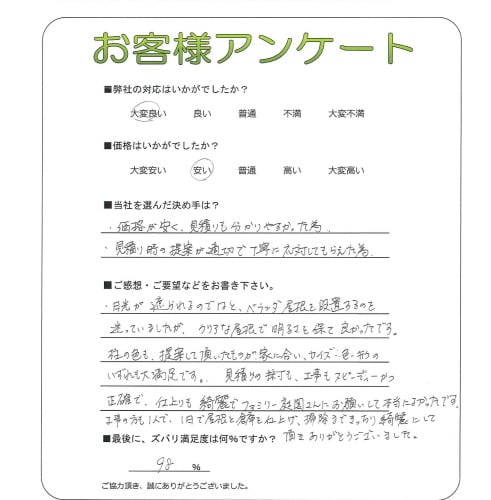 お客様アンケート
■弊社の対応はいかがでしたか？
大変良い 良い 普通 不満 大変不満
■価格はいかがでしたか？
大変安い 安い 普通 高い 大変高い
■当社を選んだ決め手は？
・価格が安く、見積りも分かりやすかった為。
・見積り時の提案が適切で丁寧に対応してもらえた為。
■ご感想・ご要望などをお書き下さい。
・日光が遮られるのではと、ベランダ屋根を設置するのを
迷っていましたが、クリアな屋根で明るさも保て良かったです。
柱の色も、提案して頂いたものが家に合い、サイズ・色・形の
いずれも大満足です。見積りの採寸も、工事もスピーディーかつ
正確で、仕上りも綺麗でファミリー庭園さんにお願いして本当によかったです。
工事の方も1人で、1日で屋根と倉庫を仕上げ、掃除まできっちり綺麗にして
頂きありがとうございました。
■最後に、ズバリ満足度は何%ですか？
98 %
ご協力頂き、誠にありがとうございました。